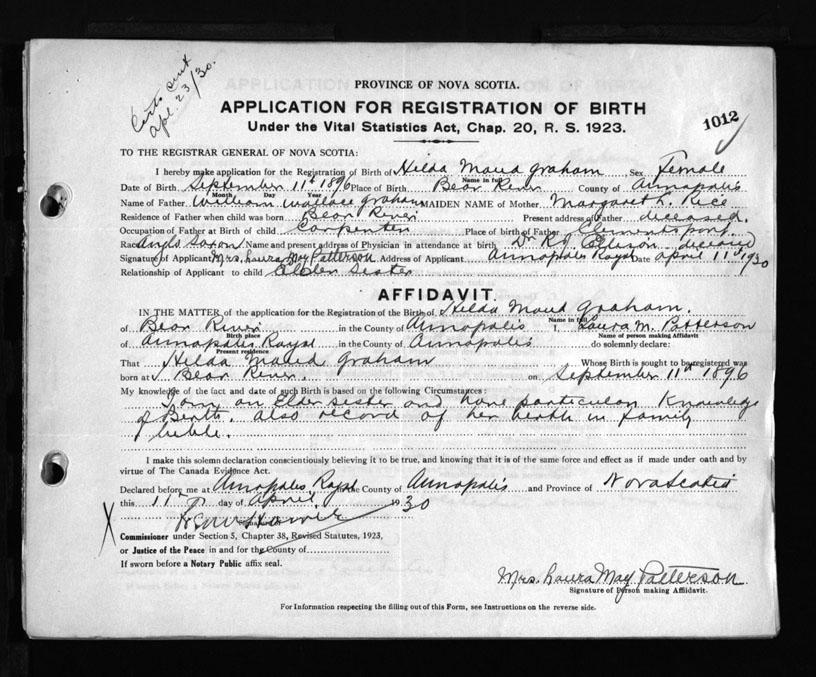 Certs sent
Apl. 23/30.
PROVINCE OF NOVA SCOTIA.
APPLICATION FOR REGISTRATION OF BIRTH
1012
Under the Vital Statistics Act, Chap. 20, R. S. 1923.
TO THE REGISTRAR GENERAL OF NOVA SCOTIA:
I hereby make application for the Registration of Birth of Hilda Maud Graham Sex Female
Name in full
Date of Birth September 11th 1896 Place of Birth Bear River County of Annapolis
Month Day Year
Name of Father William Wallace Graham MAIDEN NAME of Mother Margaret L. Rice
Residence of Father when child was born Bear River Present address of Father deceased.
Occupation of Father at Birth of child Carpenter Place of birth of Father Clementsport.
Race Anglo Saxon Name and present address of Physician in attendance at birth Dr. R J deceased
Signature of Applicant Mrs. Laura May Patterson Address of Applicant Annapolis Royal Date April 11th 1930
Relationship of Applicant to child Elder Sister
AFFIDAVIT.
IN THE MATTER of the application for the Registration of the Birth of Hilda Maud Graham.
Name in full
of Bear River in the County of Annapolis I, Laura M. Patterson
Birth place Name of person making Affidavit
of Annapolis Royal in the County of Annapolis do solemnly declare:
Present residence
That Hilda Maud Graham Whose Birth is sought to be registered was
born at Bear River. on September 11th 1896
My knowledge of the fact and date of such Birth is based on the following Circumstances:
I am an Elder sister and have particular Knowledge
of Birth. also record of her birth in family
bible.
I make this solemn declaration conscientiously believing it to be true, and knowing that it is of the same force and effect as if made under oath and by
virtue of The Canada Evidence Act.
Declared before me at Annapolis Royal the County of Annapolis and Province of Nova Scotia
this 11th day of April 1930
X
Commissioner under Section 5, Chapter 38, Revised Statutes, 1923,
or Justice of the Peace in and for the County of
If sworn before a Notary Public affix seal.
Mrs. Laura May Patterson.
Signature of Person making Affidavit.
For Information respecting the filling out of this Form, see Instructions on the reverse side.